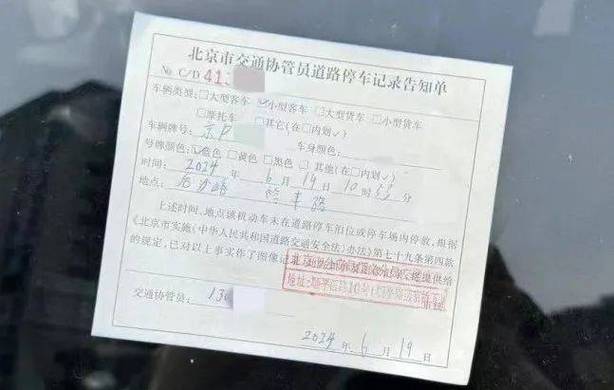 北京市交通协管员道路停车记录告知单
№ C/D 413
车辆类型:□大型客车 ☑小型客车 □大型货车 □小型货车
□摩托车 □其它(在□内划√)
车辆牌号: 京P 车身颜色:
号牌颜色:☑蓝色 □黄色 □黑色 □其他(在□内划√)
时间: 2024 年 6 月 19 日 10 时 分
地点: 路
上述时间、地点该机动车未在道路停车泊位或停车场内停放,根据
《北京市实施〈中华人民共和国道路交通安全法〉办法》第七十九条第四款
的规定,已对以上事实作了图像记录
提供给
地址:
交通协管员: 13
2024 年 6 月 19 日